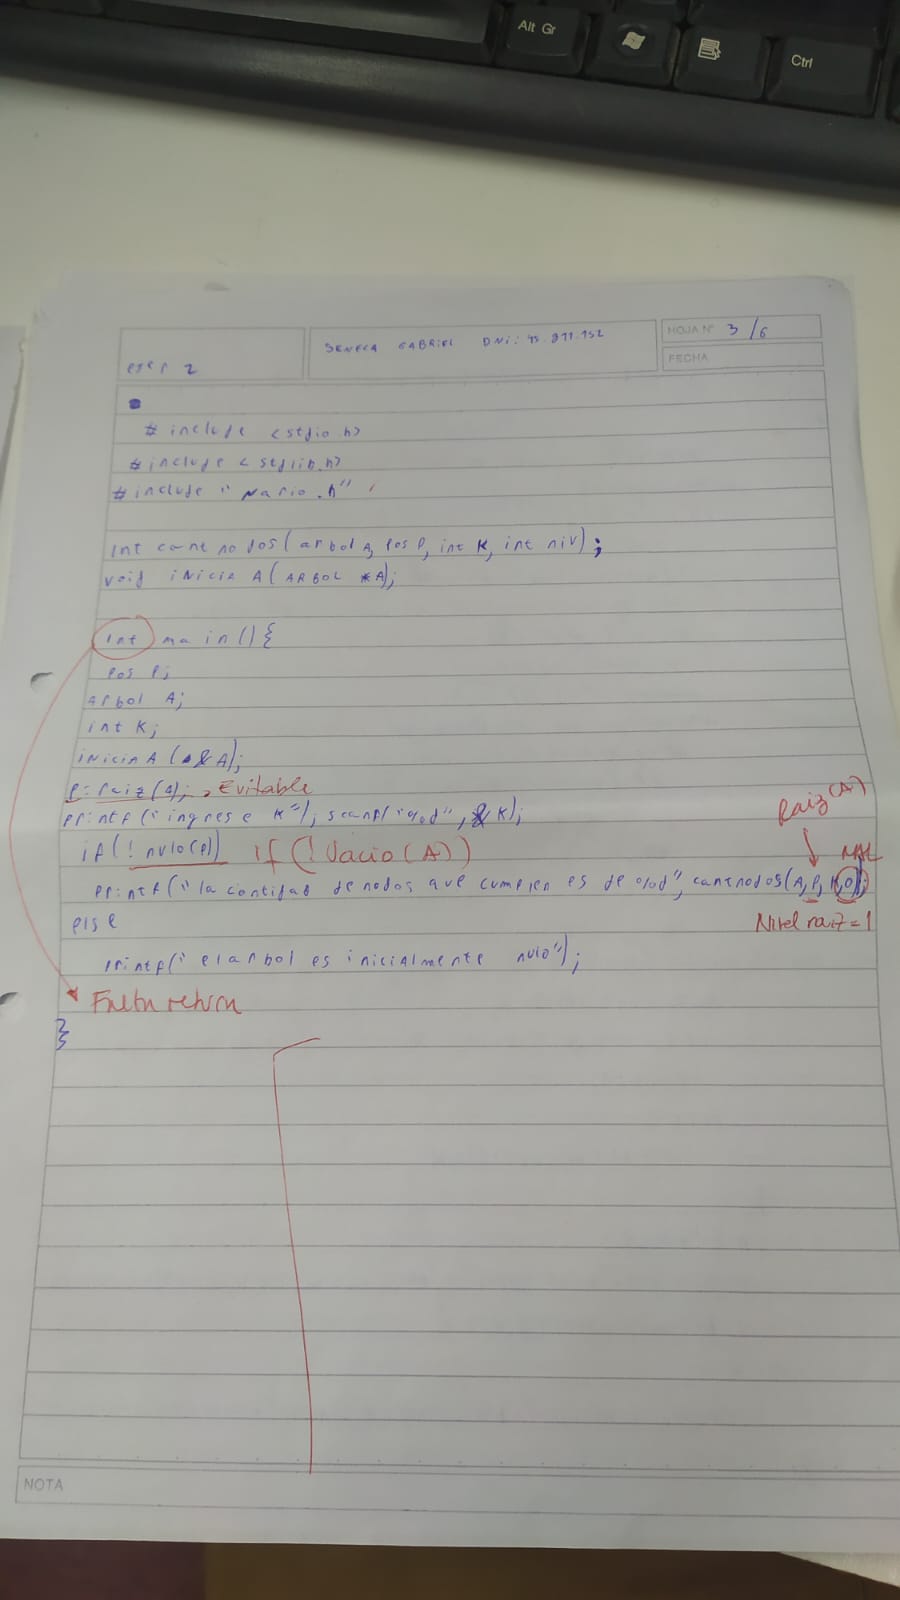 Alt Gr
Ctrl
ejer 2
SENECA GABRIEL DNI: 45.811.152
HOJA N° 3/6
FECHA
# include <stdio.h>
# include < stdlib.h>
# include " nario.h"
int cant nodos( arbol A, pos P, int K, int niv);
void inicia A( ARBOL *A);
int main(){
pos P;
arbol A;
int K;
inicia A (&A);
P= raiz(A); Evitable
Raiz(A)
printf("ingrese K"); scanf("%d", &K);
if(! nulo(P)) if (! Vacio(A))
MAL
printf("la cantidad de nodos que cumplen es de %d", cantnodos(A,P,K,0));
else
Nivel raiz=1
printf(" el arbol es inicialmente nulo");
Falta return
}
NOTA